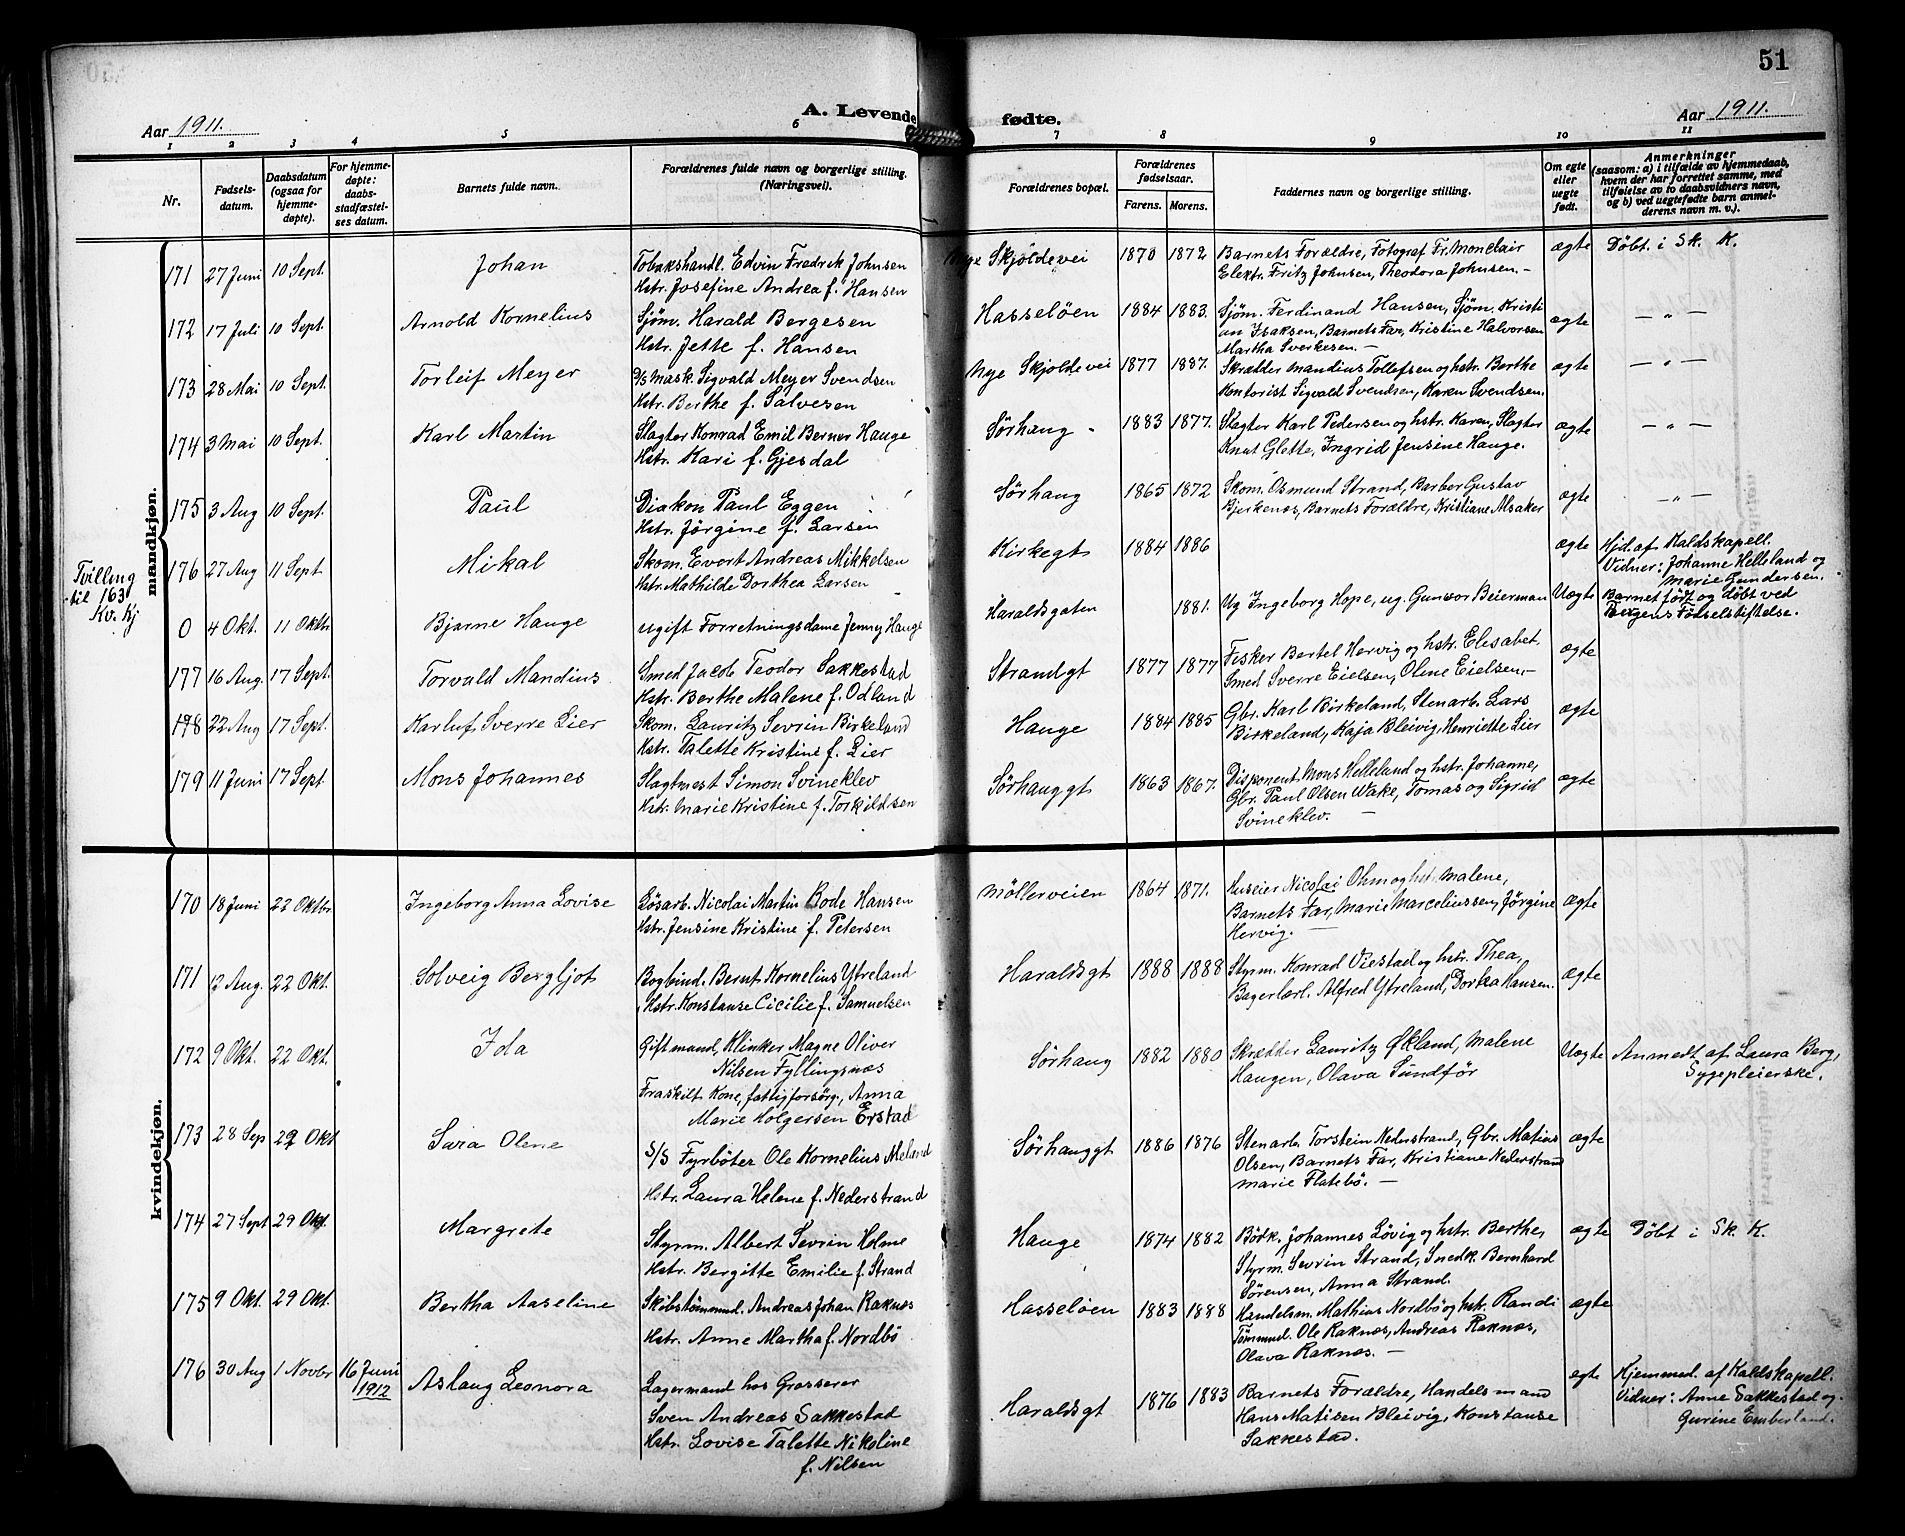 51
A. Levende fødte.
Aar 1911.
Aar 1911.
1 2 3 4 5 6 7 8 9 10 11
Nr.
Fødsels-
datum.
Daabsdatum
(ogsaa for
hjemme-
døpte).
For hjemme-
døpte:
daabs-
stadfæstel-
ses datum.
Barnets fulde navn.
Forældrenes fulde navn og borgerlige stilling.
(Næringsvei).
Forældrenes bopæl.
Forældrenes
fødselsaar.
Farens. Morens.
Faddernes navn og borgerlige stilling.
Om egte
eller
uegte
født.
Anmerkninger
(saasom: a) i tilfælde av hjemmedaab,
hvem der har forrettet samme, med
tilføielse av to daabsvidners navn,
og b) ved uegtefødte barn anmel-
derens navn m. v.).
mandkjøn.
171 27 Juni 10 Sept. Johan
Tobakshandl. Edvin Fredrik Johnsen
Hstr. Josefine Andrea f. Hansen
Nye Skjoldevei 1870 1872
Barnets Forældre, Fotograf Fr. Monclair
Elektr. Fritz Johnsen, Theodora Johnsen. -
ægte Döbt i Sk. K.
172 17 Juli 10 Sept. Arnold Kornelius
Sjöm. Harald Bergesen
Hstr. Jette f. Hansen
Hasselöen 1884 1883.
Sjöm. Ferdinand Hansen, Sjöm. Kristi
an Isaksen, Barnets Far, Kristine Halvorsen
Martha Sverkesen. -
ægte - " -
173 28 Mai 10 Sept. Torleif Meyer
D/S Mask. Sigvald Meyer Svendsen
Hstr. Berthe f. Salvesen
Nye Skjoldevei 1877 1887.
Skrædder Mandius Tollefsen og hstr. Berthe
Kontorist Sigvald Svendsen, Karen Svendsen.
ægte - " -
174 3 Mai 10 Sept. Karl Martin
Slagter Konrad Emil Berner Hauge
Hstr. Kari f. Gjesdal
Sörhaug - 1883 1877.
Slagter Karl Pedersen og hstr. Karen, Slagter
Knut Glette, Ingrid Jensine Hauge.
ægte - " -
175 3 Aug 10 Sept. Paul
Diakon Paul Eggen
Hstr. Jörgine f. Larsen
Sörhaug 1865 1872
Skom. Osmund Strand, Barber Gustav
Bjerkenæs, Barnets Forældre, Kristiane Alsaker
ægte - " -
176 27 Aug 11 Sept Mikal
Skom. Evert Andreas Mikkelsen
Hstr. Mathilde Dorthea Larsen
Kirkegt 1884 1886
ægte Hjd. af Kaldskapell.
Vidner: Johanne Helleland og
Marie Gundersen.
Tvilling
til 163
Kv. Kj
0 4 Okt. 11 Oktb. Bjarne Hauge
ugift Forretningsdame Jenny Hauge
Haraldsgaten 1881.
Ug Ingeborg Hope, ug. Gunvor Beierman
Uægte Barnet født og døbt ved
Bergens Fødselsstiftelse.
177 16 Aug. 17 Sept. Torvald Mandius
Smed Jacob Teodor Sakkestad
Hstr. Berthe Malene f. Odland
Strandgt 1877 1877
Fisker Bertel Hervig og hstr. Elisabet.
Smed Sverre Eielsen, Olene Eielsen, -
ægte
178 22 Aug 17 Sept. Karluf Sverre Lier
Skom. Lauritz Sevrin Birkeland
Hstr. Talette Kristine f. Lier
Hauge 1884 1885
Gbr. Karl Birkeland, Stenarb. Lars
Birkeland, Kaja Bleivig, Henriette Lier
ægte
179 11 Juni 17 Sept. Mons Johannes
Slagtmest Simon Svineklev
Hstr. Marie Kristine f. Torkildsen
Sörhauggt 1863 1867.
Disponent Mons Helleland og hstr. Johanne,
Gbr. Paul Olsen Wake, Tomas og Sigrid
Svineklev. -
ægte
kvindekjøn.
170 18 Juni 22 Oktbr Ingeborg Anna Lovise
Lösarb. Nicolai Martin Bode Hansen
Hstr. Jensine Kristine f. Petersen
Möllerveien 1864 1871.
Huseier Nicolai Ohm og hst. Malene,
Barnets Far, Marie Marceliussen, Jörgine
Hervig. -
ægte
171 12 Aug. 22 Okt. Solveig Bergljot
Bogbind. Bernt Kornelius Ytreland
Hstr. Konstanse Cicilie f. Samuelsen
Haraldsgt 1888 1888
Styrm. Konrad Viestad og hstr. Thea,
Bagerlærl. Alfred Ytreland, Dortea Hansen.
ægte
172 9 Okt. 22 Okt. Ida
Gift mand, Klinker Magne Oliver
Nilsen Fyllingsnæs
Fraskilt Kone, fattigforsörg., Anna
Marie Holgersen Erstad
Sörhaug 1882 1880
Skrædder Lauritz Økland, Malene
Haugen, Olava Sundför
Uægte Anmedt af Laura Berg,
Sygepleierske.
173 28 Sep 29 Okt Sara Olene
S/S Fyrböter Ole Kornelius Meland
Hstr. Laura Helene f. Nederstrand
Sörhauggt 1886 1876
Stenarb. Torstein Nederstrand, Gbr. Matias
Olsen, Barnets Far, Kristiane Nederstrand
Marie Flatebö. -
ægte
174 27 Sept 29 Okt Margrete
Styrm. Albert Sevrin Holme
Hstr. Bergitte Emilie f. Strand
Hauge 1874 1882
Bödk. Johannes Lövig og hstr. Berthe,
Styrm. Sevrin Strand, Snedk. Bernhard
Sörensen, Anna Strand.
ægte Döbt i Sk. K.
175 9 Okt. 29 Okt. Bertha Aaseline
Skibstömmmd. Andreas Johan Raknæs
Hstr. Anne Martha f. Nordbö
Hasselöen 1883 1888
Handelsm. Mathius Nordbö og hstr. Randi
Tömmmd. Ole Raknæs, Andreas Raknæs,
Olava Raknæs. -
ægte
176 30 Aug 1 Novbr 16 Juni
1912
Aslaug Leonora
Lagermand hos Grosserer
Sven Andreas Sakkestad
Hstr. Lovise Talette Nikoline
f. Nilsen
Haraldsgt 1876 1883
Barnets Forældre, Handelsmand
Hans Matisen Bleivig, Konstanse
Sakkestad.
egte Hjemmed. af Kaldskapell.
Vidner: Anne Sakkestad og
Gurine Emberland.